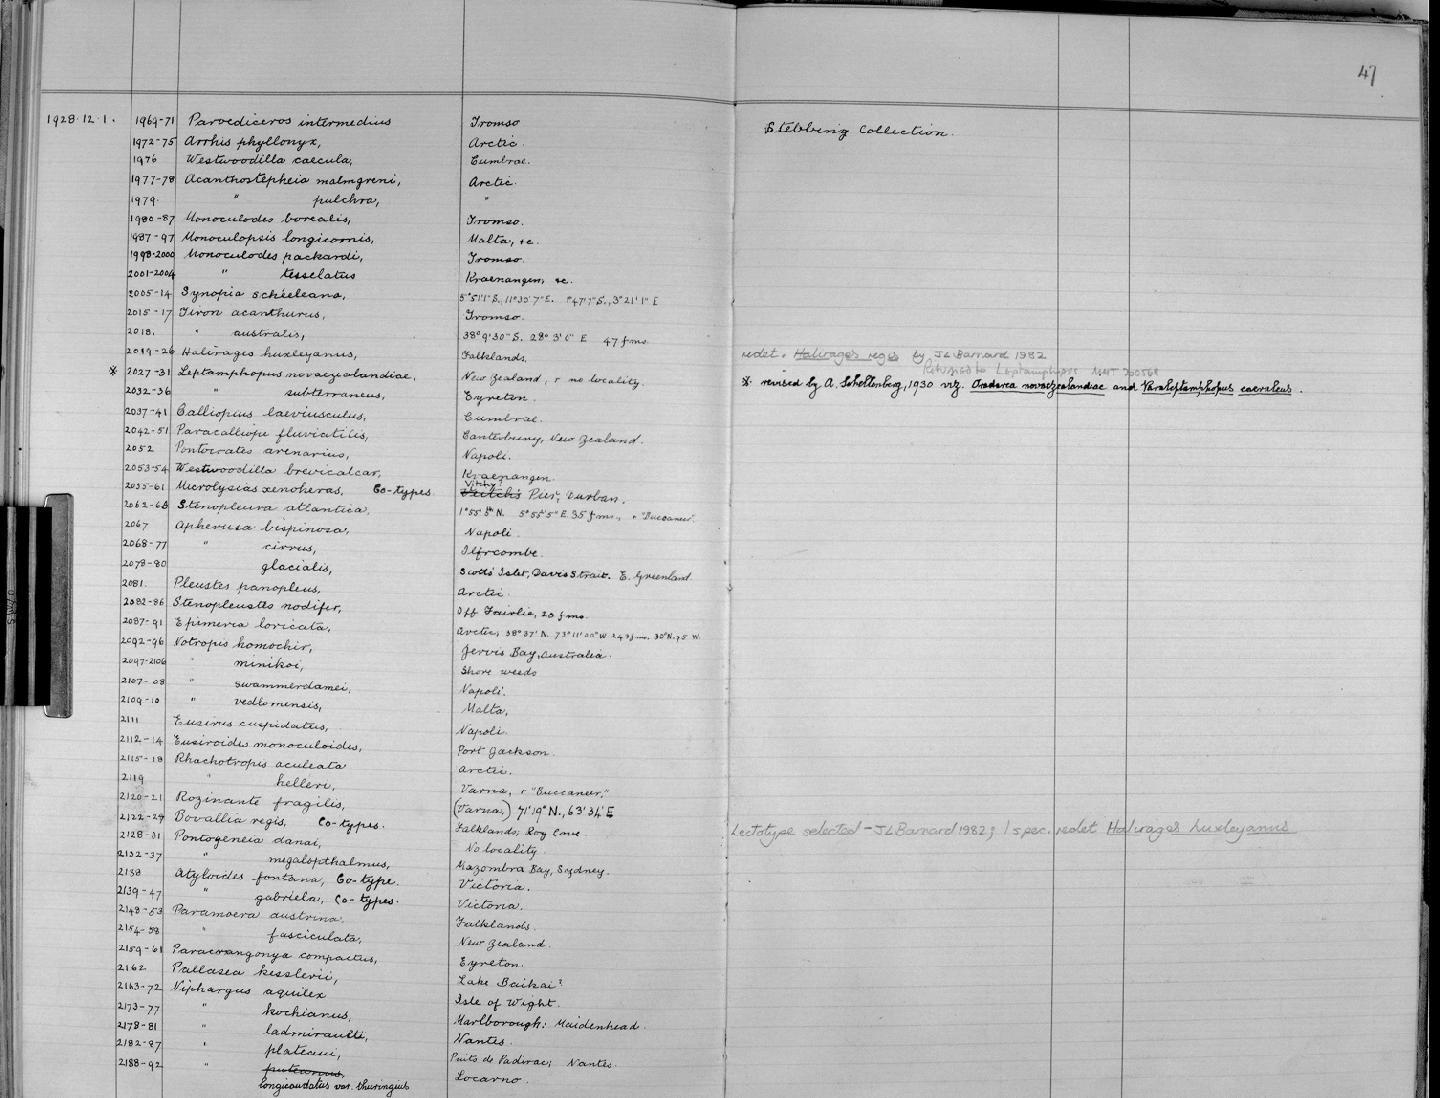 47
1928.12.1. 1969-71 Paroediceros intermedius Tromso Stebbing Collection.
1972-75 Arrhis phyllonyx, Arctic.
1976 Westwoodilla caecula, Cumbrae.
1977-78 Acanthostepheia malmgreni, Arctic.
1979. " pulchra, "
1980-87 Monoculodes borealis, Tromso.
987-97 Monoculopsis longicornis, Malta, &c.
1998-2000 Monoculodes packardi, Tromso.
2001-2004 " tesselatus Kraenangen, &c.
2005-14 Synopia scheeleana,
2015-17 Tiron acanthurus, Tromso.
2018. " australis, 38° 9' 30" S. 28° 3' E 47 fms.
2019-26 Halirages huxleyanus, Falklands. redet. Halirages regis by JL Barnard 1982
Returned to Leptamphopus
* 2027-31 Leptamphopus novaezealandiae, New Zealand, & no locality. * revised by A. Schellenberg, 1930 viz. Oradarea novaezealandiae and Paraleptamphopus caeruleus.
2032-36 " subterraneus, Eyreton.
2037-41 Calliopius laeviusculus, Cumbrae.
2042-51 Paracalliope fluviatilis, Canterbury, New Zealand.
2052 Pontocrates arenarius, Napoli.
2053-54 Westwoodilla brevicalcar, Kraenangen.
2055-61 Microlysias xenokeras, Co-types. Pier, Durban.
2062-66 Stenopleura atlantica, 35 fms., "Buccaneer".
2067 Apherusa bispinosa, Napoli.
2068-77 " cirrus, Ilfracombe.
2078-80 glacialis, Scotts' Islet, Davis Strait. E. Greenland.
2081. Pleustes panopleus, Arctic.
2082-86 Stenopleustes nodifer, Off Fairlie, 20 fms.
2087-91 Epimeria loricata, Arctic,
2092-96 Notropis homochir, Jervis Bay, Australia.
2097-2106 " minikoi, Shore weeds
2107-08 " swammerdamei, Napoli.
2109-10 " vedlomensis, Malta,
2111 Eusirus cuspidatus, Napoli.
2112-14 Eusiroides monoculoides, Port Jackson.
2115-18 Rhachotropis aculeata Arctic.
2119 " helleri, Varna, & "Buccaneer,"
2120-21 Rozinante fragilis, (Varna.) 71°19' N., 63°34' E
2122-27 Bovallia regis, Co-types. Falklands, Roy Cove. Lectotype selected - JL Barnard 1982; 1 spec. redet Halirages huxleyanus
2128-31 Pontogeneia danai, No locality.
2132-37 " megalopthalmus, Mazombra Bay, Sydney.
2138 Atyloides fontana, Co-type. Victoria.
2139-47 " gabrielae, Co-types. Victoria.
2148-53 Paramoera austrina. Falklands.
2154-58 " fasciculata, New Zealand.
2159-61 Paracrangonyx compactus, Eyreton.
2162 Pallasea kesslerii, Lake Baikal
2163-72 Niphargus aquilex Isle of Wight.
2173-77 " kochianus, Marlborough; Maidenhead.
2178-81 " ladmiraulti, Nantes.
2182-87 " plateaui, Puits de Padirac; Nantes.
2188-92 " puteanus, Locarno.
longicaudatus var. thuringius